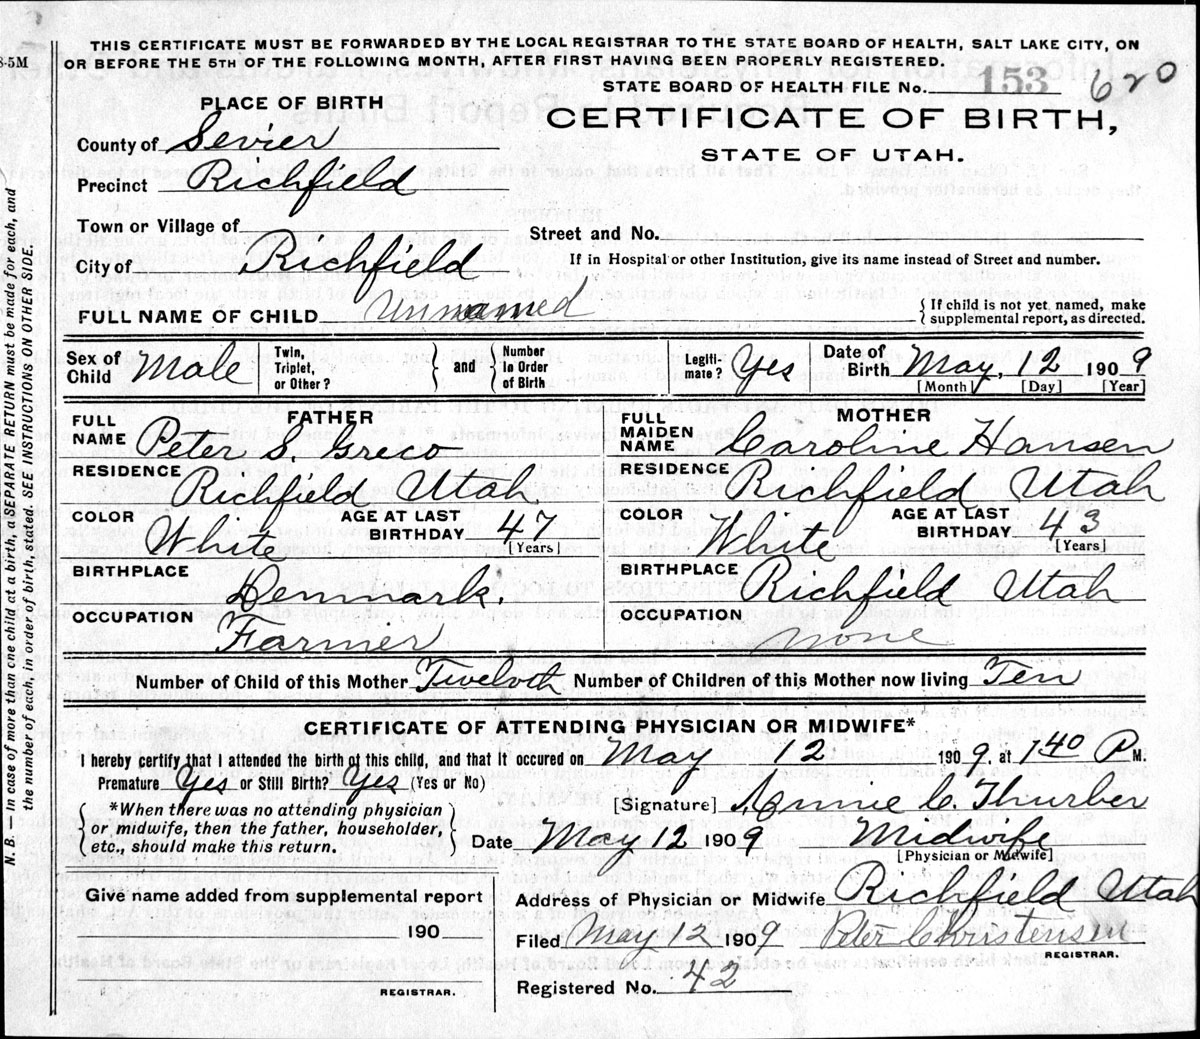 THIS CERTIFICATE MUST BE FORWARDED BY THE LOCAL REGISTRAR TO THE STATE BOARD OF HEALTH, SALT LAKE CITY, ON
OR BEFORE THE 5TH OF THE FOLLOWING MONTH, AFTER FIRST HAVING BEEN PROPERLY REGISTERED.
8-5M
STATE BOARD OF HEALTH FILE No. 153 620
PLACE OF BIRTH
CERTIFICATE OF BIRTH,
STATE OF UTAH.
County of Sevier
Precinct Richfield
Town or Village of
Street and No.
City of Richfield
If in Hospital or other Institution, give its name instead of Street and number.
FULL NAME OF CHILD Unnamed
{ If child is not yet named, make
supplemental report, as directed.
Sex of Child Male
Twin, Triplet, or Other? } and { Number in Order of Birth
Legiti-mate? Yes
Date of Birth May, 12 1909
[Month] [Day] [Year]
FATHER
FULL NAME Peter S. Greco
RESIDENCE Richfield Utah
COLOR White
AGE AT LAST BIRTHDAY 47
[Years]
BIRTHPLACE Denmark.
OCCUPATION Farmer
MOTHER
FULL MAIDEN NAME Caroline Hansen
RESIDENCE Richfield Utah
COLOR White
AGE AT LAST BIRTHDAY 43
[Years]
BIRTHPLACE Richfield Utah
OCCUPATION None
Number of Child of this Mother Twelvth Number of Children of this Mother now living Ten
CERTIFICATE OF ATTENDING PHYSICIAN OR MIDWIFE*
I hereby certify that I attended the birth of this child, and that it occured on May 12 1909, at 1 40 P M.
Premature Yes or Still Birth? Yes (Yes or No)
{ *When there was no attending physician
or midwife, then the father, householder,
etc., should make this return. }
[Signature] Annie C. Thurber
Date May 12 1909 Midwife
[Physician or Midwife]
Give name added from supplemental report
190
REGISTRAR.
Address of Physician or Midwife Richfield Utah
Filed May 12 1909 Peter Christensen
REGISTRAR.
Registered No. 42
N. B. — In case of more than one child at a birth, a SEPARATE RETURN must be made for each, and
the number of each, in order of birth, stated. SEE INSTRUCTIONS ON OTHER SIDE.